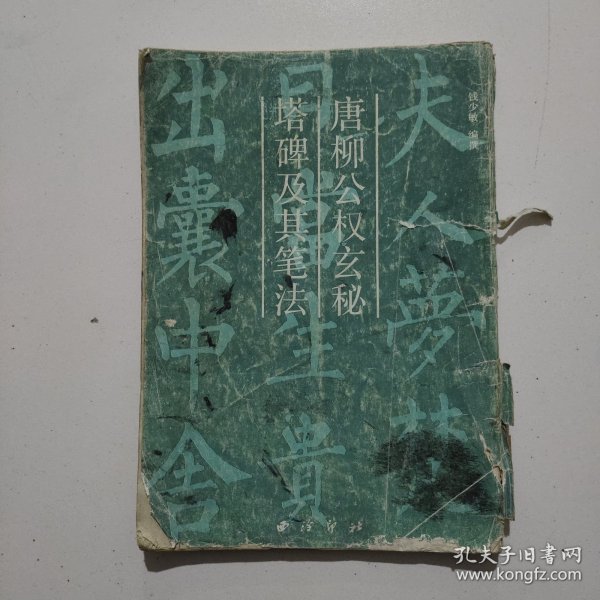 钱少敏 编撰
唐柳公权玄秘
塔碑及其笔法
夫人夢梵
日當生貴
出囊中舍
西泠印社
孔夫子旧書网
www.kongfz.com